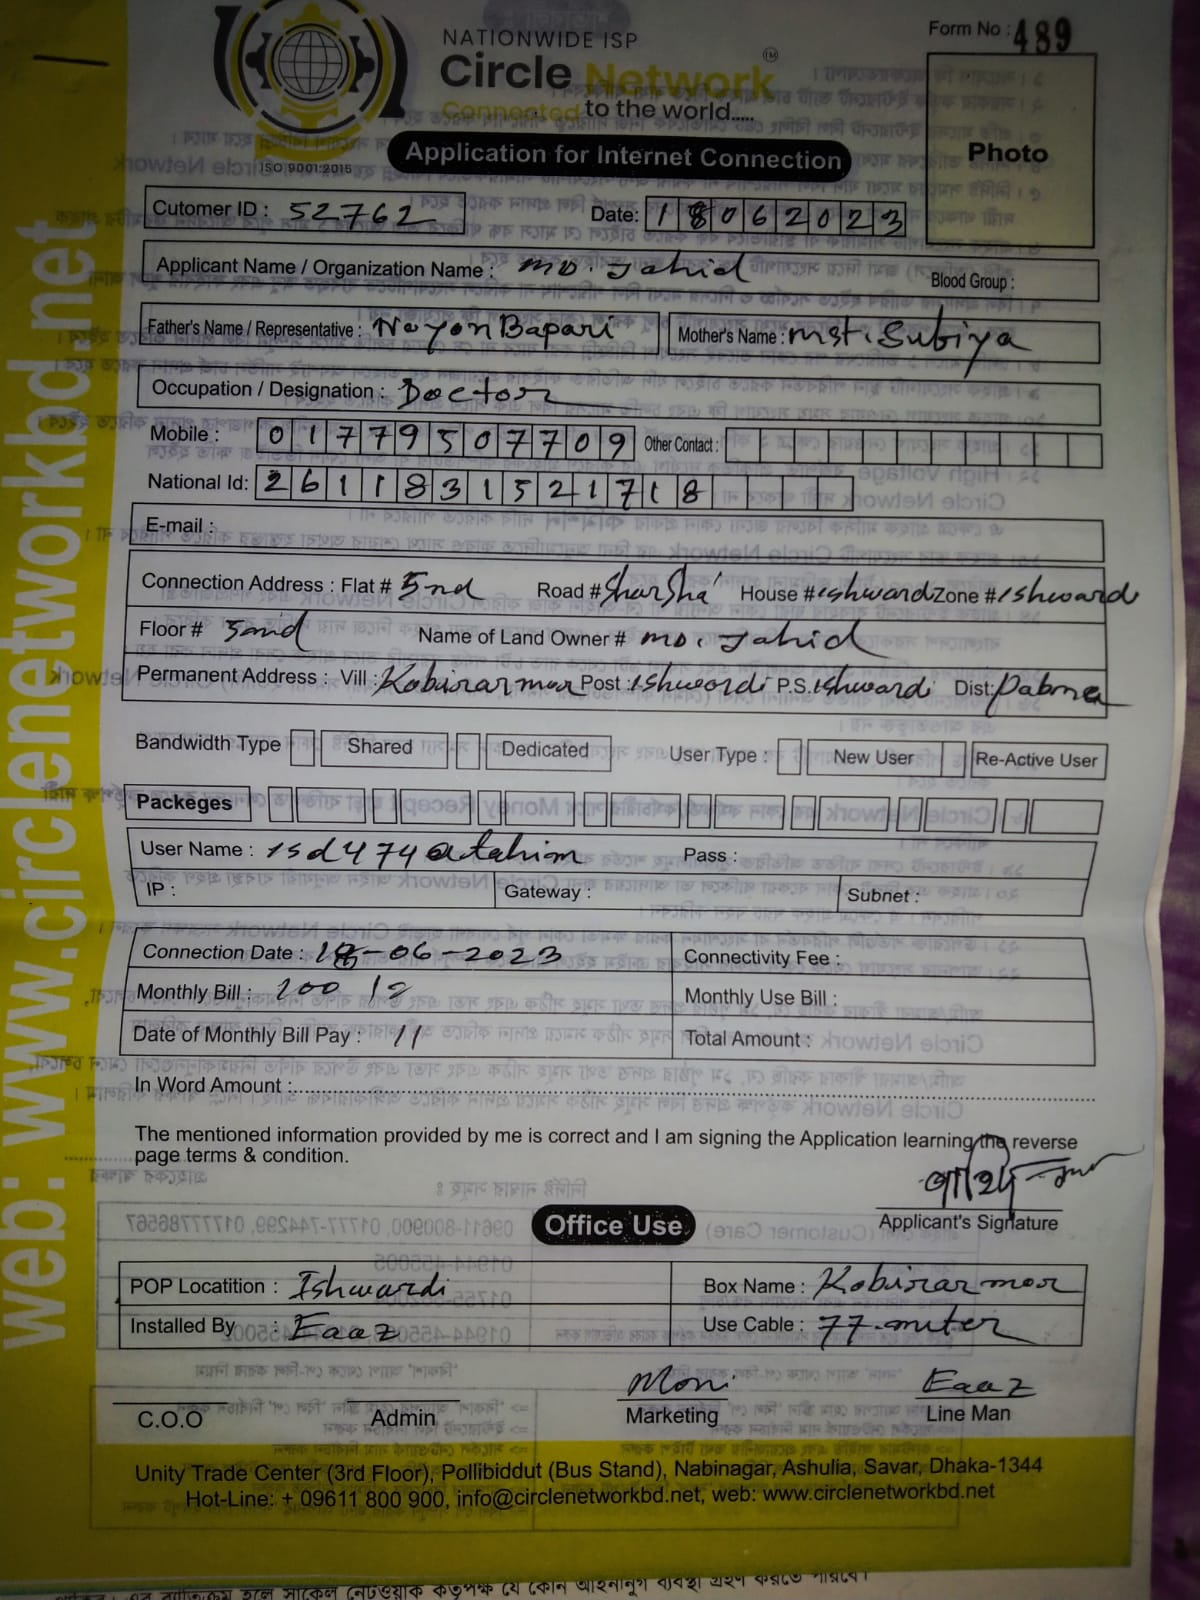 NATIONWIDE ISP
Form No : 489
Circle Network TM
Connected to the world.....
ISO 9001:2015
Application for Internet Connection
Photo
Cutomer ID : 52762
Date: 18062023
Applicant Name / Organization Name : MD. Jahid
Blood Group :
Father's Name / Representative : Nayon Bapari
Mother's Name : Mst. Subiya
Occupation / Designation : Doctor
Mobile : 01779507709
Other Contact :
National Id: 2611831521718
E-mail :
Connection Address : Flat # 5nd Road # Sharsha House # ishwardi Zone # Ishward
Floor # Name of Land Owner # MD. Jahid
Permanent Address : Vill : Kobirar mor Post : Ishwordi P.S. Ishwardi Dist: Pabna
Bandwidth Type Shared Dedicated User Type : New User Re-Active User
Packeges
User Name : isd474@tahim Pass :
IP : Gateway : Subnet :
Connection Date : 18-06-2023 Connectivity Fee :
Monthly Bill : Monthly Use Bill :
Date of Monthly Bill Pay : 11 Total Amount :
In Word Amount :
The mentioned information provided by me is correct and I am signing the Application learning the reverse
page terms & condition.
Applicant's Signature
Office Use
POP Locatition : Ishwardi Box Name : Kobirar mor
Installed By : Eaaz Use Cable : 77-miter
Moni Eaaz
C.O.O Admin Marketing Line Man
Unity Trade Center (3rd Floor), Pollibiddut (Bus Stand), Nabinagar, Ashulia, Savar, Dhaka-1344
Hot-Line: + 09611 800 900, info@circlenetworkbd.net, web: www.circlenetworkbd.net
web: www.circlenetworkbd.net